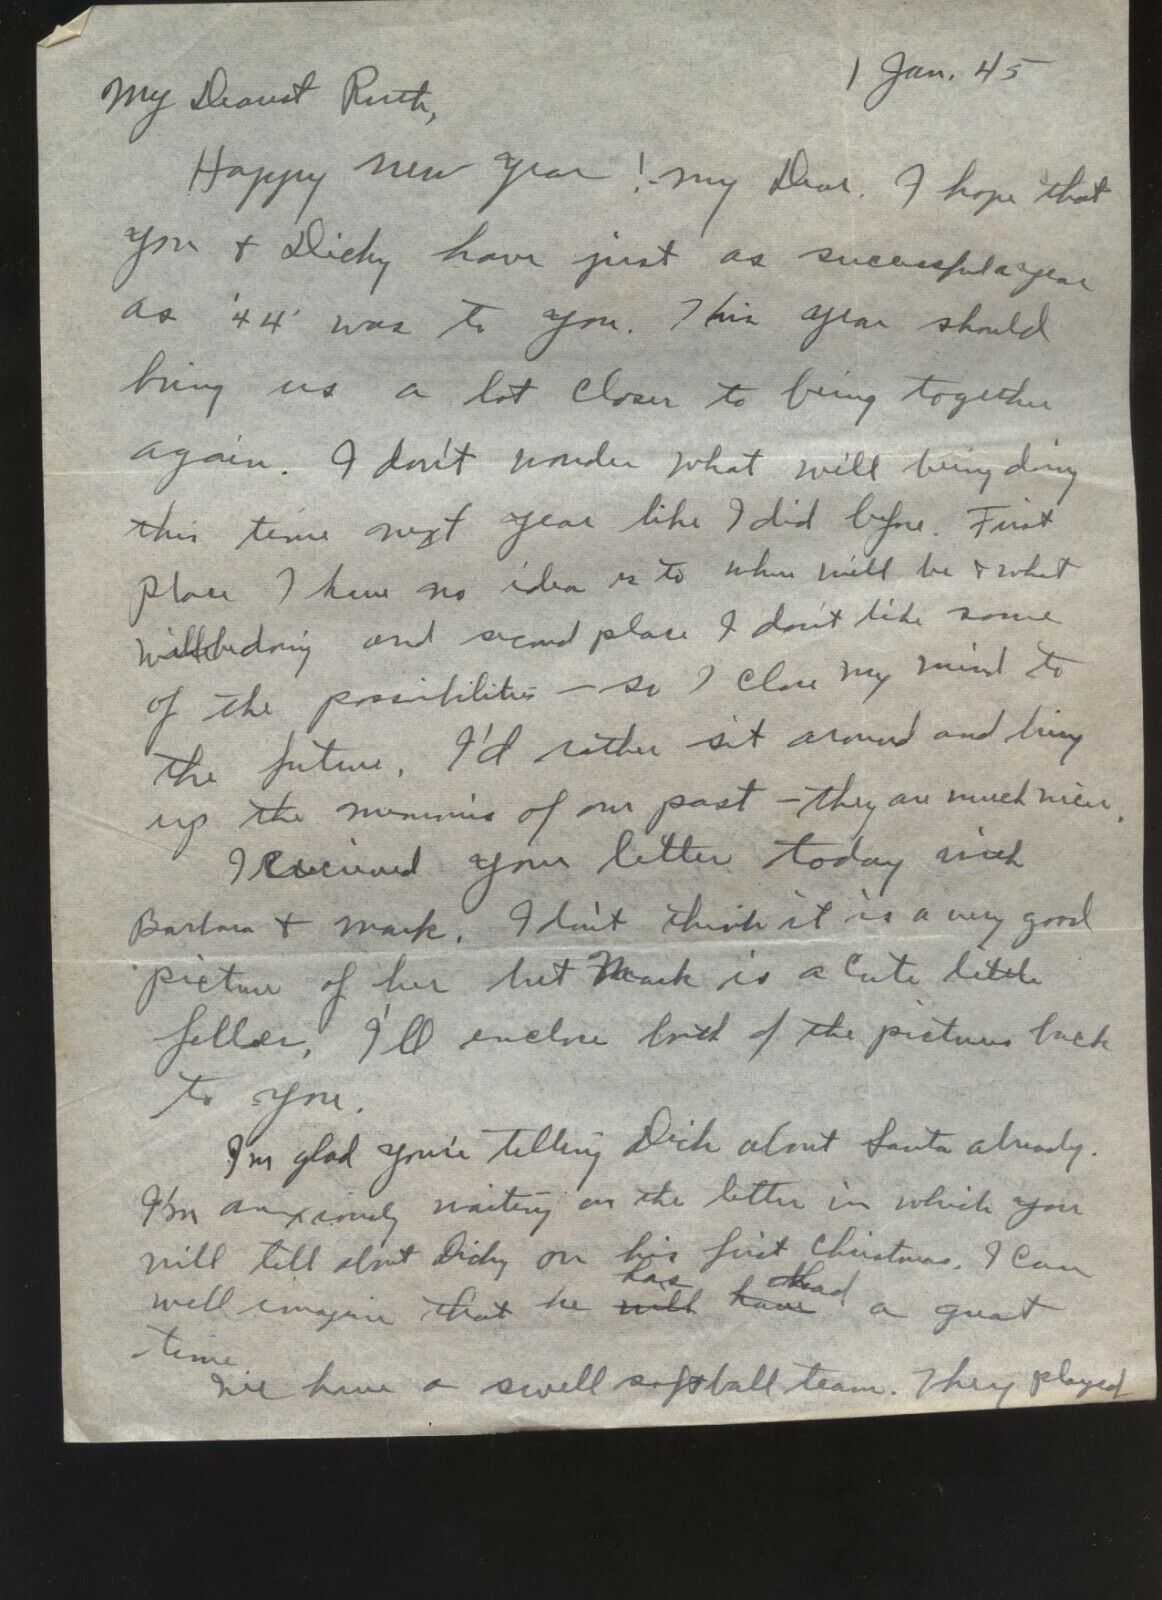 1 Jan. 45
My Dearest Ruth,
Happy new year! - my Dear. I hope that
you & Dicky have just as successful a year
as '44' was to you. This year should
bring us a lot closer to being together
again. I don't wonder what will being doing
this time next year like I did before. First
place I have no idea as to where will be & what
will be doing and second place I don't like some
of the possibilities – so I close my mind to
the future. I'd rather sit around and bring
up the memories of our past – they are much nicer.
I recieved your letter today with
Barbara & Mark. I don't think it is a very good
picture of her but Mark is a cute little
feller. I'll enclose both of the pictures back
to you.
I'm glad you're telling Dick about Santa already.
I'm anxiously waiting on the letter in which you
will tell about Dicky on his first Christmas. I can
well imagine that he will has have had a great
time.
We have a swell softball team. They played